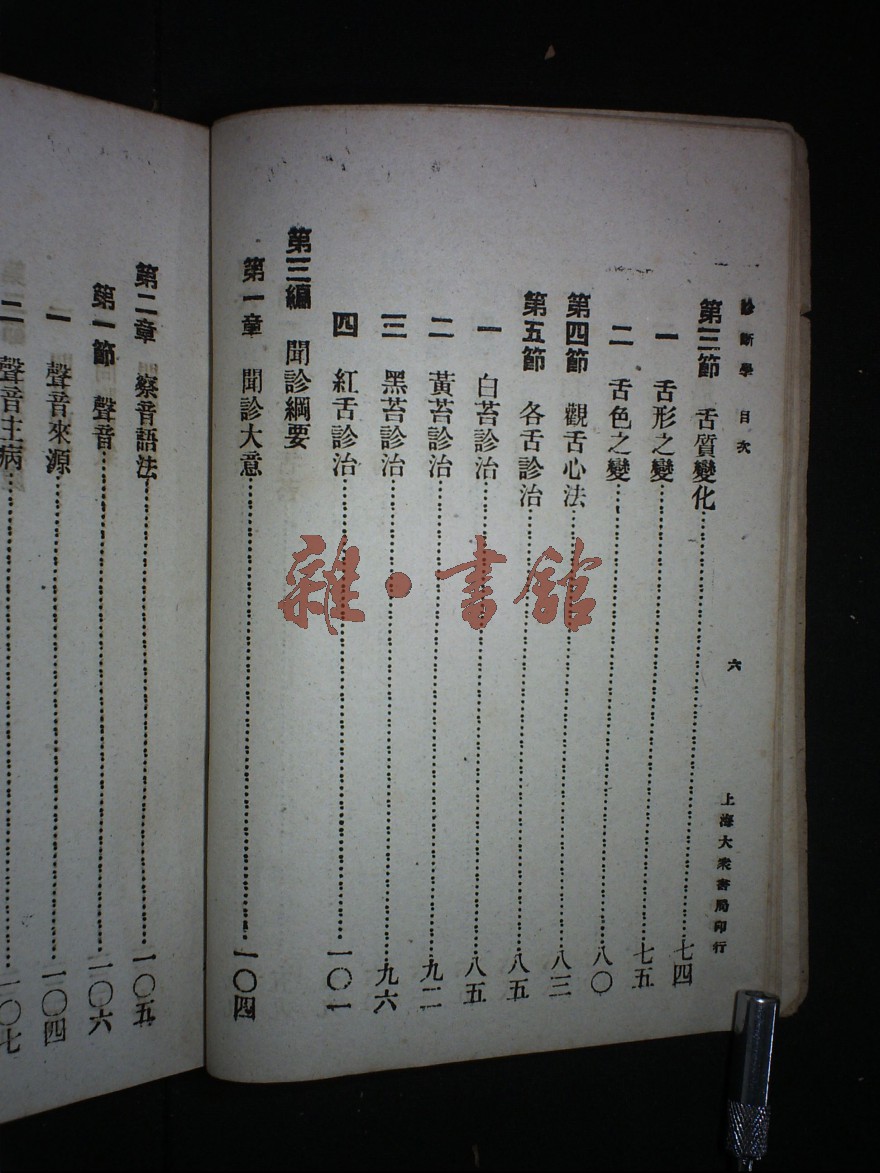 診斷學 目次 六 上海大衆書局印行
第三節 舌質變化 七四
一 舌形之變 七五
二 舌色之變 八〇
第四節 觀舌心法 八三
第五節 各舌診治 八五
一 白苔診治 八五
二 黃苔診治 九二
三 黑苔診治 九六
四 紅舌診治 一〇一
第三編 聞診綱要
第一章 聞診大意 一〇四
第二章 察音語法 一〇五
第一節 聲音 一〇六
一 聲音來源 一〇四
二 聲音主病 一〇七
雜·書館